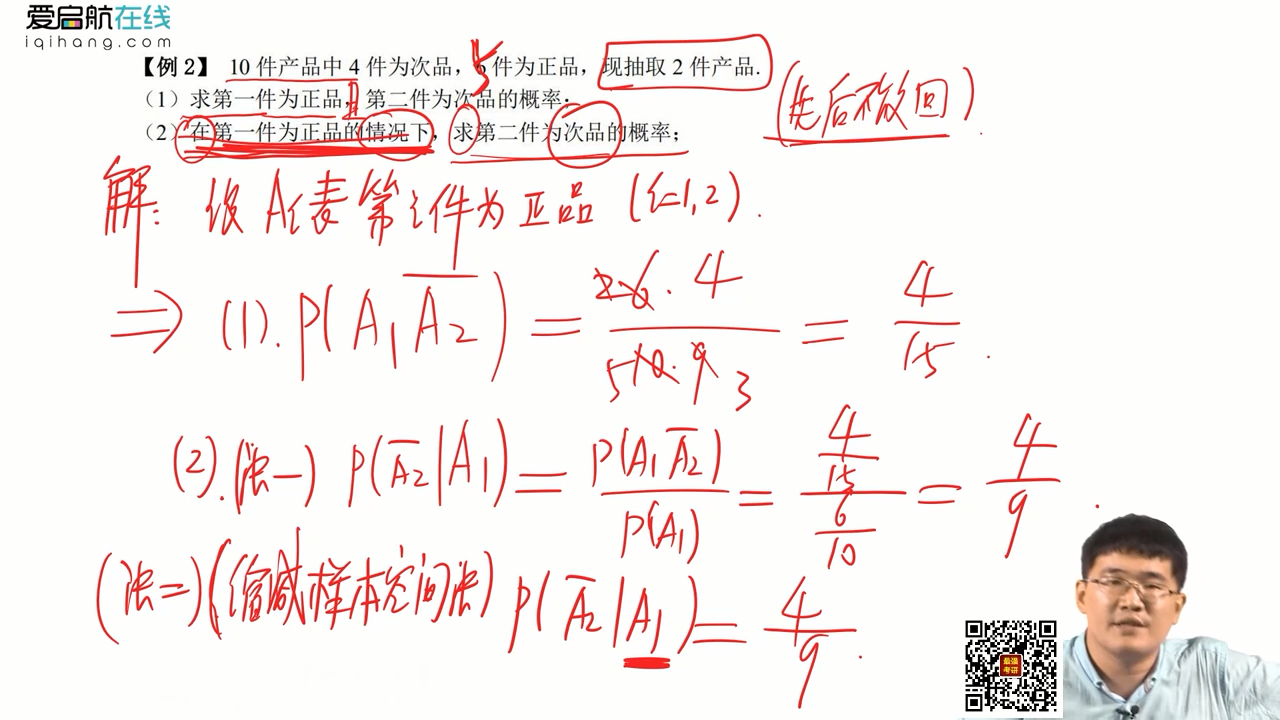 爱启航在线
iqihang.com
【例 2】 10 件产品中 4 件为次品，6 件为正品，现抽取 2 件产品.
（1）求第一件为正品，第二件为次品的概率；
（2）在第一件为正品的情况下，求第二件为次品的概率；
(先后不放回)
解: 设 Ai表第i件为正品 (i=1,2).
⇒ (1). P(A₁A̅₂) = 6·4 / 10·9 = 4/15.
(2). (法一) P(A̅₂|A₁) = P(A₁A̅₂)/P(A₁) = (4/15)/(6/10) = 4/9.
(法二)(缩减样本空间法) P(A̅₂|A₁) = 4/9.
最强
考研